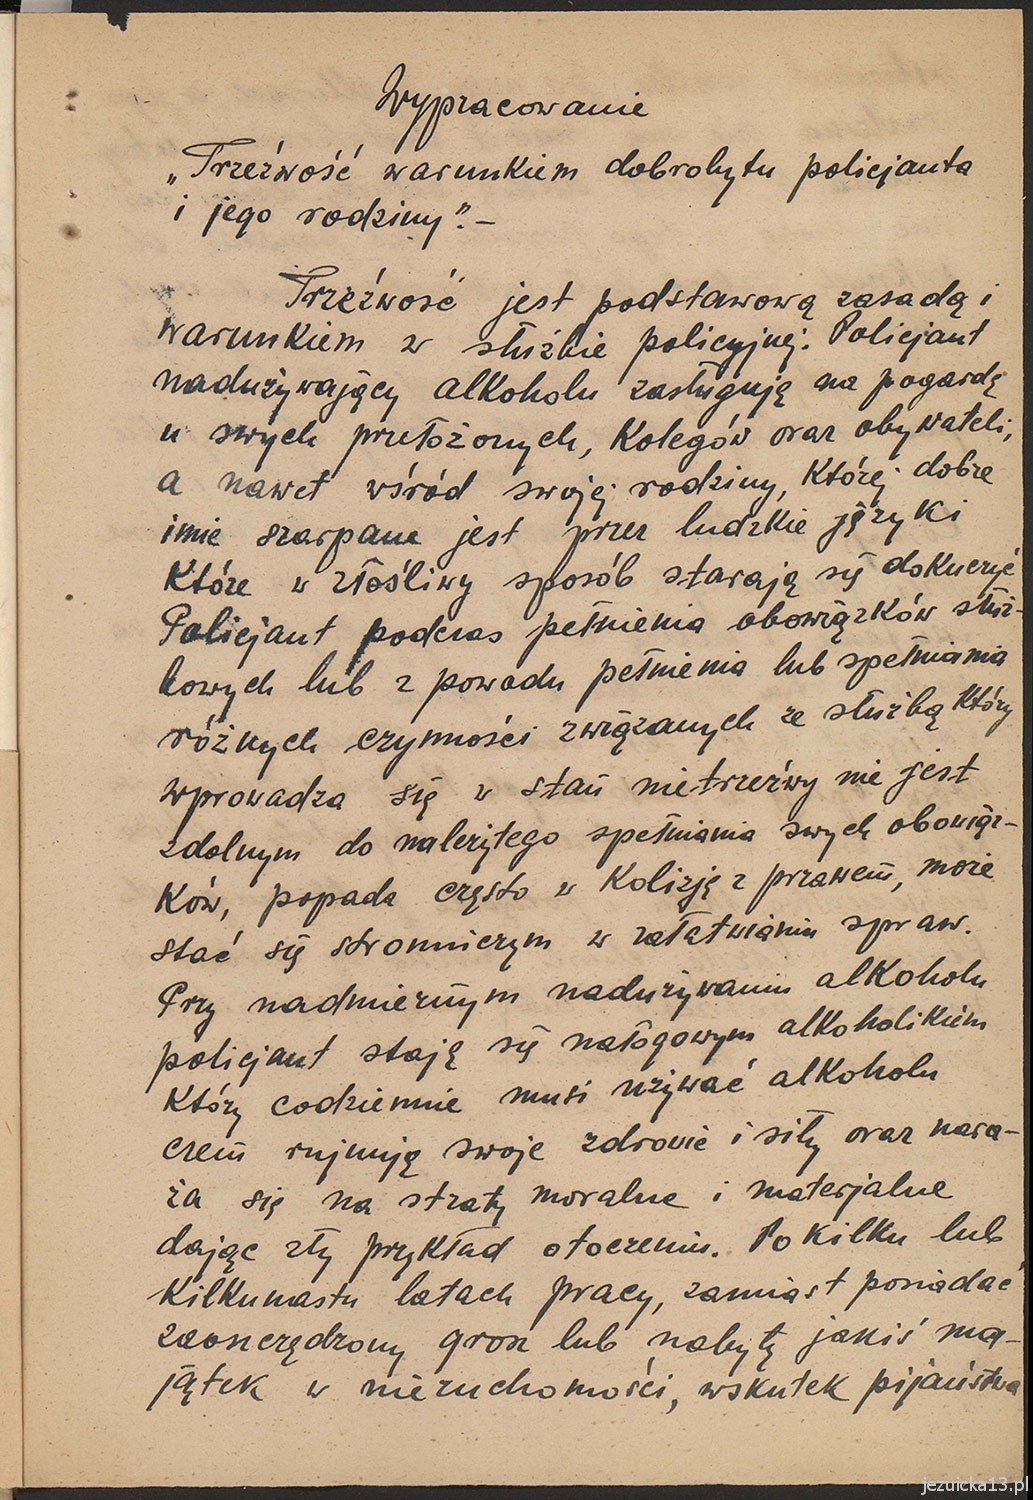 Wypracowanie
„Trzeźwość warunkiem dobrobytu policjanta
i jego rodziny”. –
Trzeźwość jest podstawową zasadą i
warunkiem w służbie policyjnej. Policjant
nadużywający alkoholu zasługują na pogardę
u swych przełożonych, kolegów oraz obywateli,
a nawet wśród swojej rodziny, której dobre
imie szarpane jest przez ludzkie języki
które w złośliwy sposób starają się dokuczyć
Policjant podczas pełnienia obowiązków służ-
bowych lub z powodu pełnienia lub spełniania
różnych czynności związanych ze służbą który
wprowadza się w stan nietrzeźwy nie jest
zdolnym do należytego spełniania swych obowiąz-
ków, popada często w kolizję z prawem, może
stać się stronniczym w załatwianiu spraw.
Przy nadmiernym nadużywaniu alkoholu
policjant stają się nałogowym alkoholikiem
który codziennie musi używać alkoholu
czem rujnują swoje zdrowie i siły oraz nara-
ża się na straty moralne i materjalne
dając zły przykład otoczeniu. Po kilku lub
kilkunastu latach pracy, zamiast posiadać
zaoszczędzony grosz lub nabyty jakiś ma-
jątek w nieruchomości, wskutek pijaństwa
jezuicka13.pl